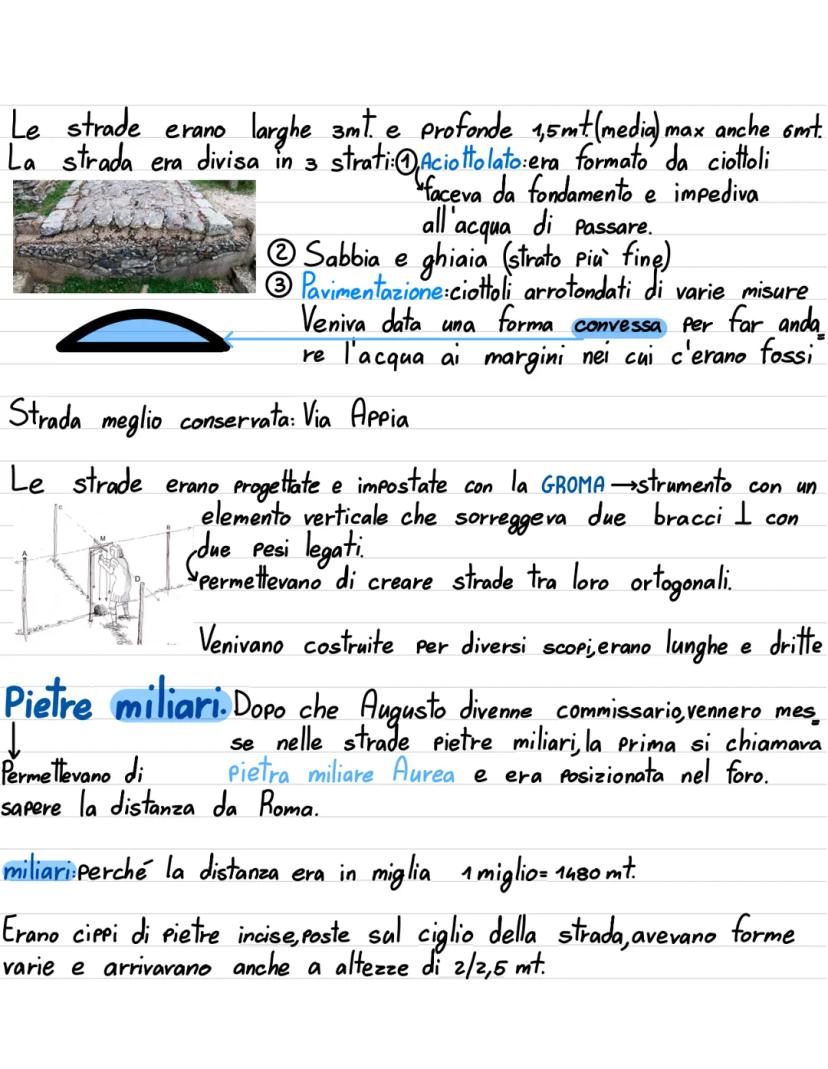 Le strade erano larghe 3mt. e profonde 1,5mt(media) max anche 6mt.
La strada era divisa in 3 strati:①Aciottolato:era formato da ciottoli
faceva da fondamento e impediva
all'acqua di passare.
② Sabbia e ghiaia (strato più fine)
③ Pavimentazione:ciottoli arrotondati di varie misure
Veniva data una forma convessa per far anda=
re l'acqua ai margini nei cui c'erano fossi
Strada meglio conservata: Via Appia
Le strade erano progettate e impostate con la GROMA →strumento con un
elemento verticale che sorreggeva due bracci ⊥ con
due pesi legati.
permettevano di creare strade tra loro ortogonali.
C
M
B
A
D
Venivano costruite per diversi scopi,erano lunghe e dritte
Pietre miliari. Dopo che Augusto divenne commissario,vennero mes_
se nelle strade pietre miliari, la prima si chiamava
pietra miliare Aurea e era posizionata nel foro.
Permettevano di
sapere la distanza da Roma.
miliari:perché la distanza era in miglia 1 miglio= 1480 mt.
Erano cippi di pietre incise,poste sul ciglio della strada,avevano forme
varie e arrivavano anche a altezze di 2/2,5 mt.